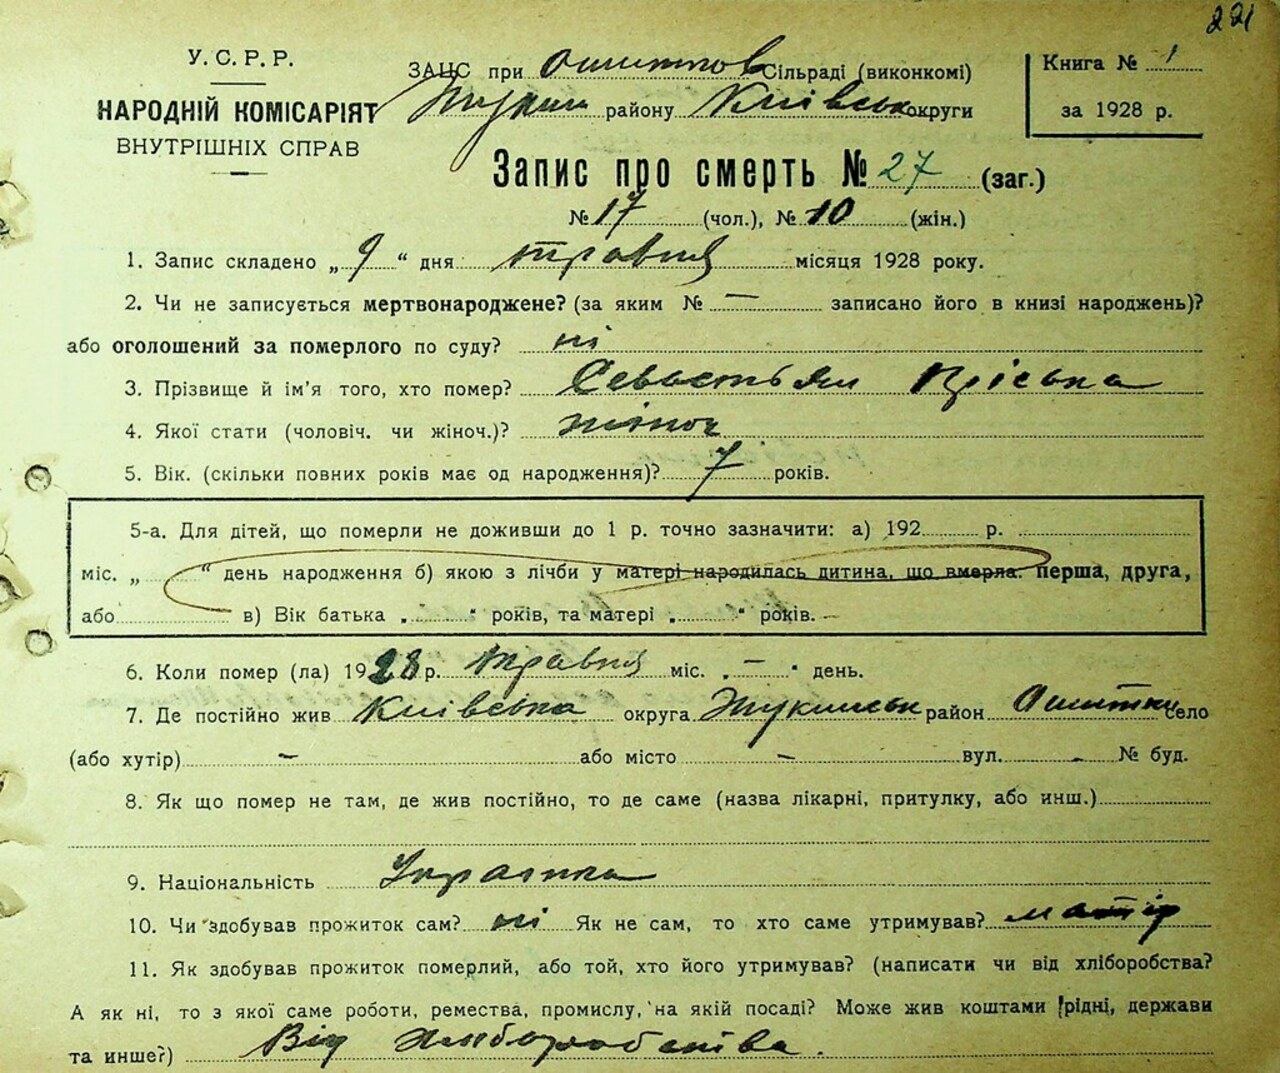 221
У. С. Р. Р.
НАРОДНІЙ КОМІСАРІЯТ
ВНУТРІШНІХ СПРАВ
ЗАЦС при Ошитков Сільраді (виконкомі)
району Київськ округи
Книга № 1
за 1928 р.
Запис про смерть № 27 (заг.)
№ 17 (чол.), № 10 (жін.)
1. Запис складено „ 9 “ дня травня місяця 1928 року.
2. Чи не записується мертвонароджене? (за яким № — записано його в книзі народжень)?
або оголошений за померлого по суду? ні
3. Прізвище й ім'я того, хто помер? Севастьян
4. Якої стати (чоловіч. чи жіноч.)? жіноч
5. Вік. (скільки повних років має од народження)? 7 років.
5-а. Для дітей, що померли не доживши до 1 р. точно зазначити: а) 192 р.
міс. „ “ день народження б) якою з лічби у матері народилась дитина, що вмерла: перша, друга,
або в) Вік батька „ “ років, та матері „ “ років.
6. Коли помер (ла) 1928 р. травня міс. „ — “ день.
7. Де постійно жив Київська округа Жукинськ район Ошитки село
(або хутір) – або місто – вул. - № буд.
8. Як що помер не там, де жив постійно, то де саме (назва лікарні, притулку, або инш.)
9. Національність Українка
10. Чи здобував прожиток сам? ні Як не сам, то хто саме утримував? матір
11. Як здобував прожиток померлий, або той, хто його утримував? (написати чи від хліборобства?
А як ні, то з якої саме роботи, ремества, промислу, на якій посаді? Може жив коштами рідні, держави
та инше?) Від Хліборобства.